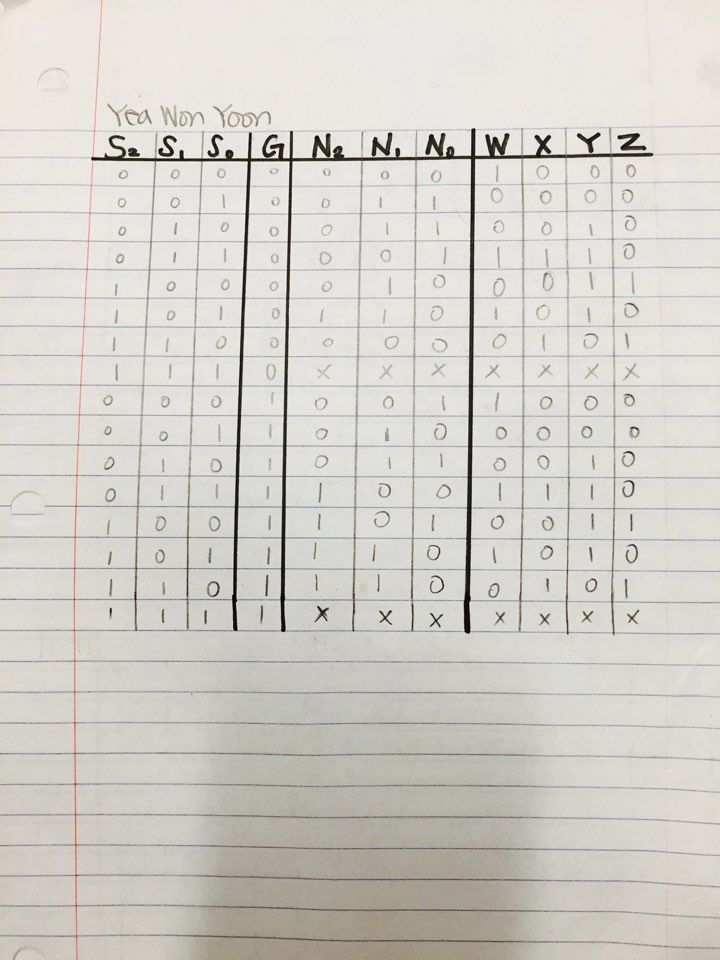 Yea Won Yoon
S₂ S₁ S₀ G N₂ N₁ N₀ W X Y Z
0 0 0 0 0 0 0 1 0 0 0
0 0 1 0 0 1 1 0 0 0 0
0 1 0 0 0 1 1 0 0 1 0
0 1 1 0 0 0 1 1 1 1 0
1 0 0 0 0 1 0 0 0 1 1
1 0 1 0 1 1 0 1 0 1 0
1 1 0 0 0 0 0 0 1 0 1
1 1 1 0 X X X X X X X
0 0 0 1 0 0 1 1 0 0 0
0 0 1 1 0 1 0 0 0 0 0
0 1 0 1 0 1 1 0 0 1 0
0 1 1 1 1 0 0 1 1 1 0
1 0 0 1 1 0 1 0 0 1 1
1 0 1 1 1 1 0 1 0 1 0
1 1 0 1 1 1 0 0 1 0 1
1 1 1 1 X X X X X X X